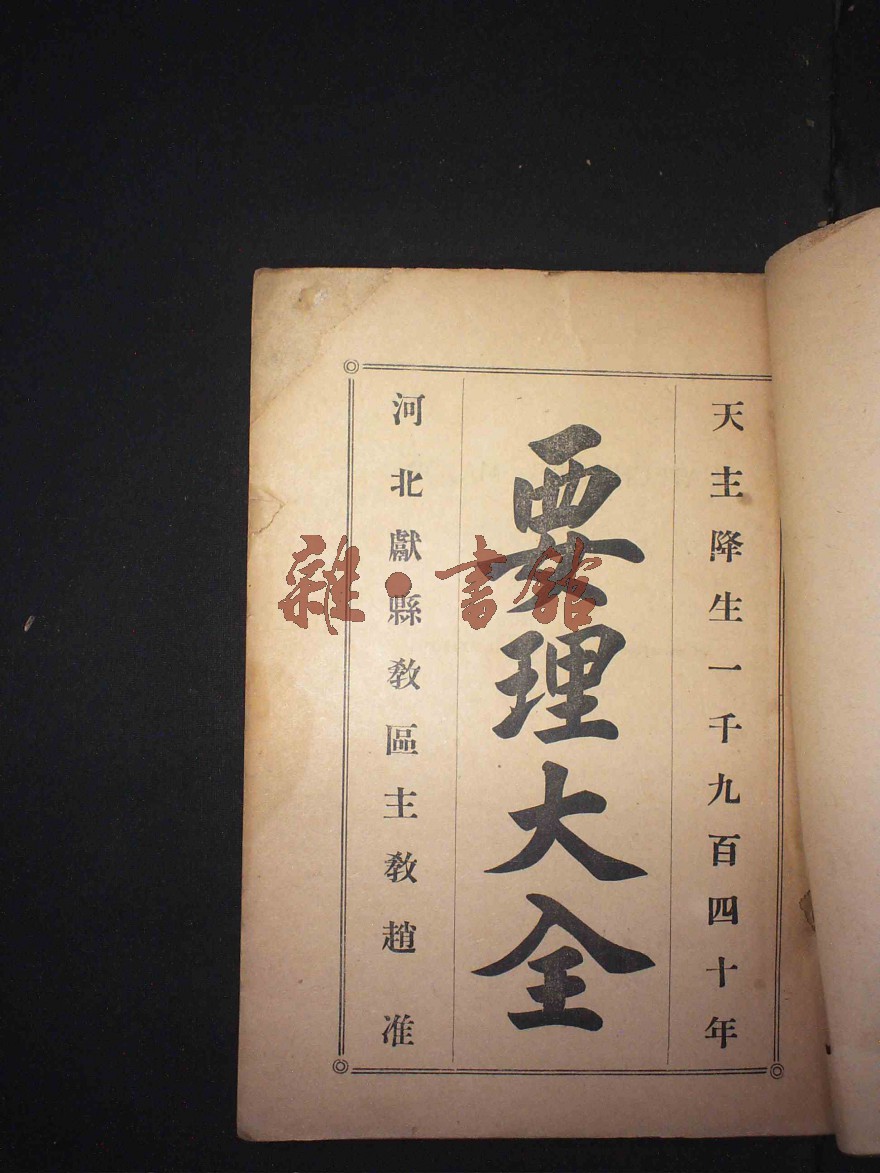 天主降生一千九百四十年
要理大全
河北獻縣教區主教趙 准
雜·書館